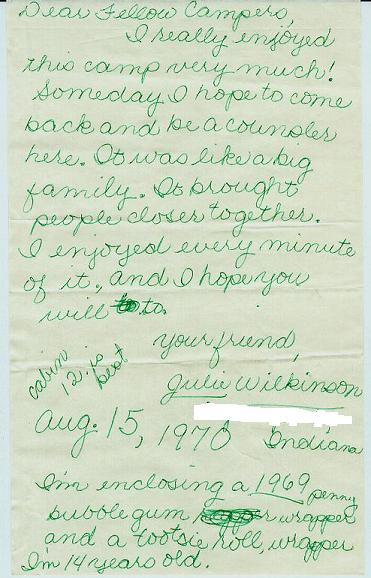 Dear Fellow Campers,
I really enjoyed
this camp very much!
Someday I hope to come
back and be a counsler
here. It was like a big
family. It brought
people closer together.
I enjoyed every minute
of it, and I hope you
will to.
your friend,
cabin
12 is
best
Julie Wilkinson
Aug. 15, 1970
Indiana
I'm enclosing a 1969 penny
bubble gum wrapper
and a tootsie roll, wrapper
I'm 14 years old.